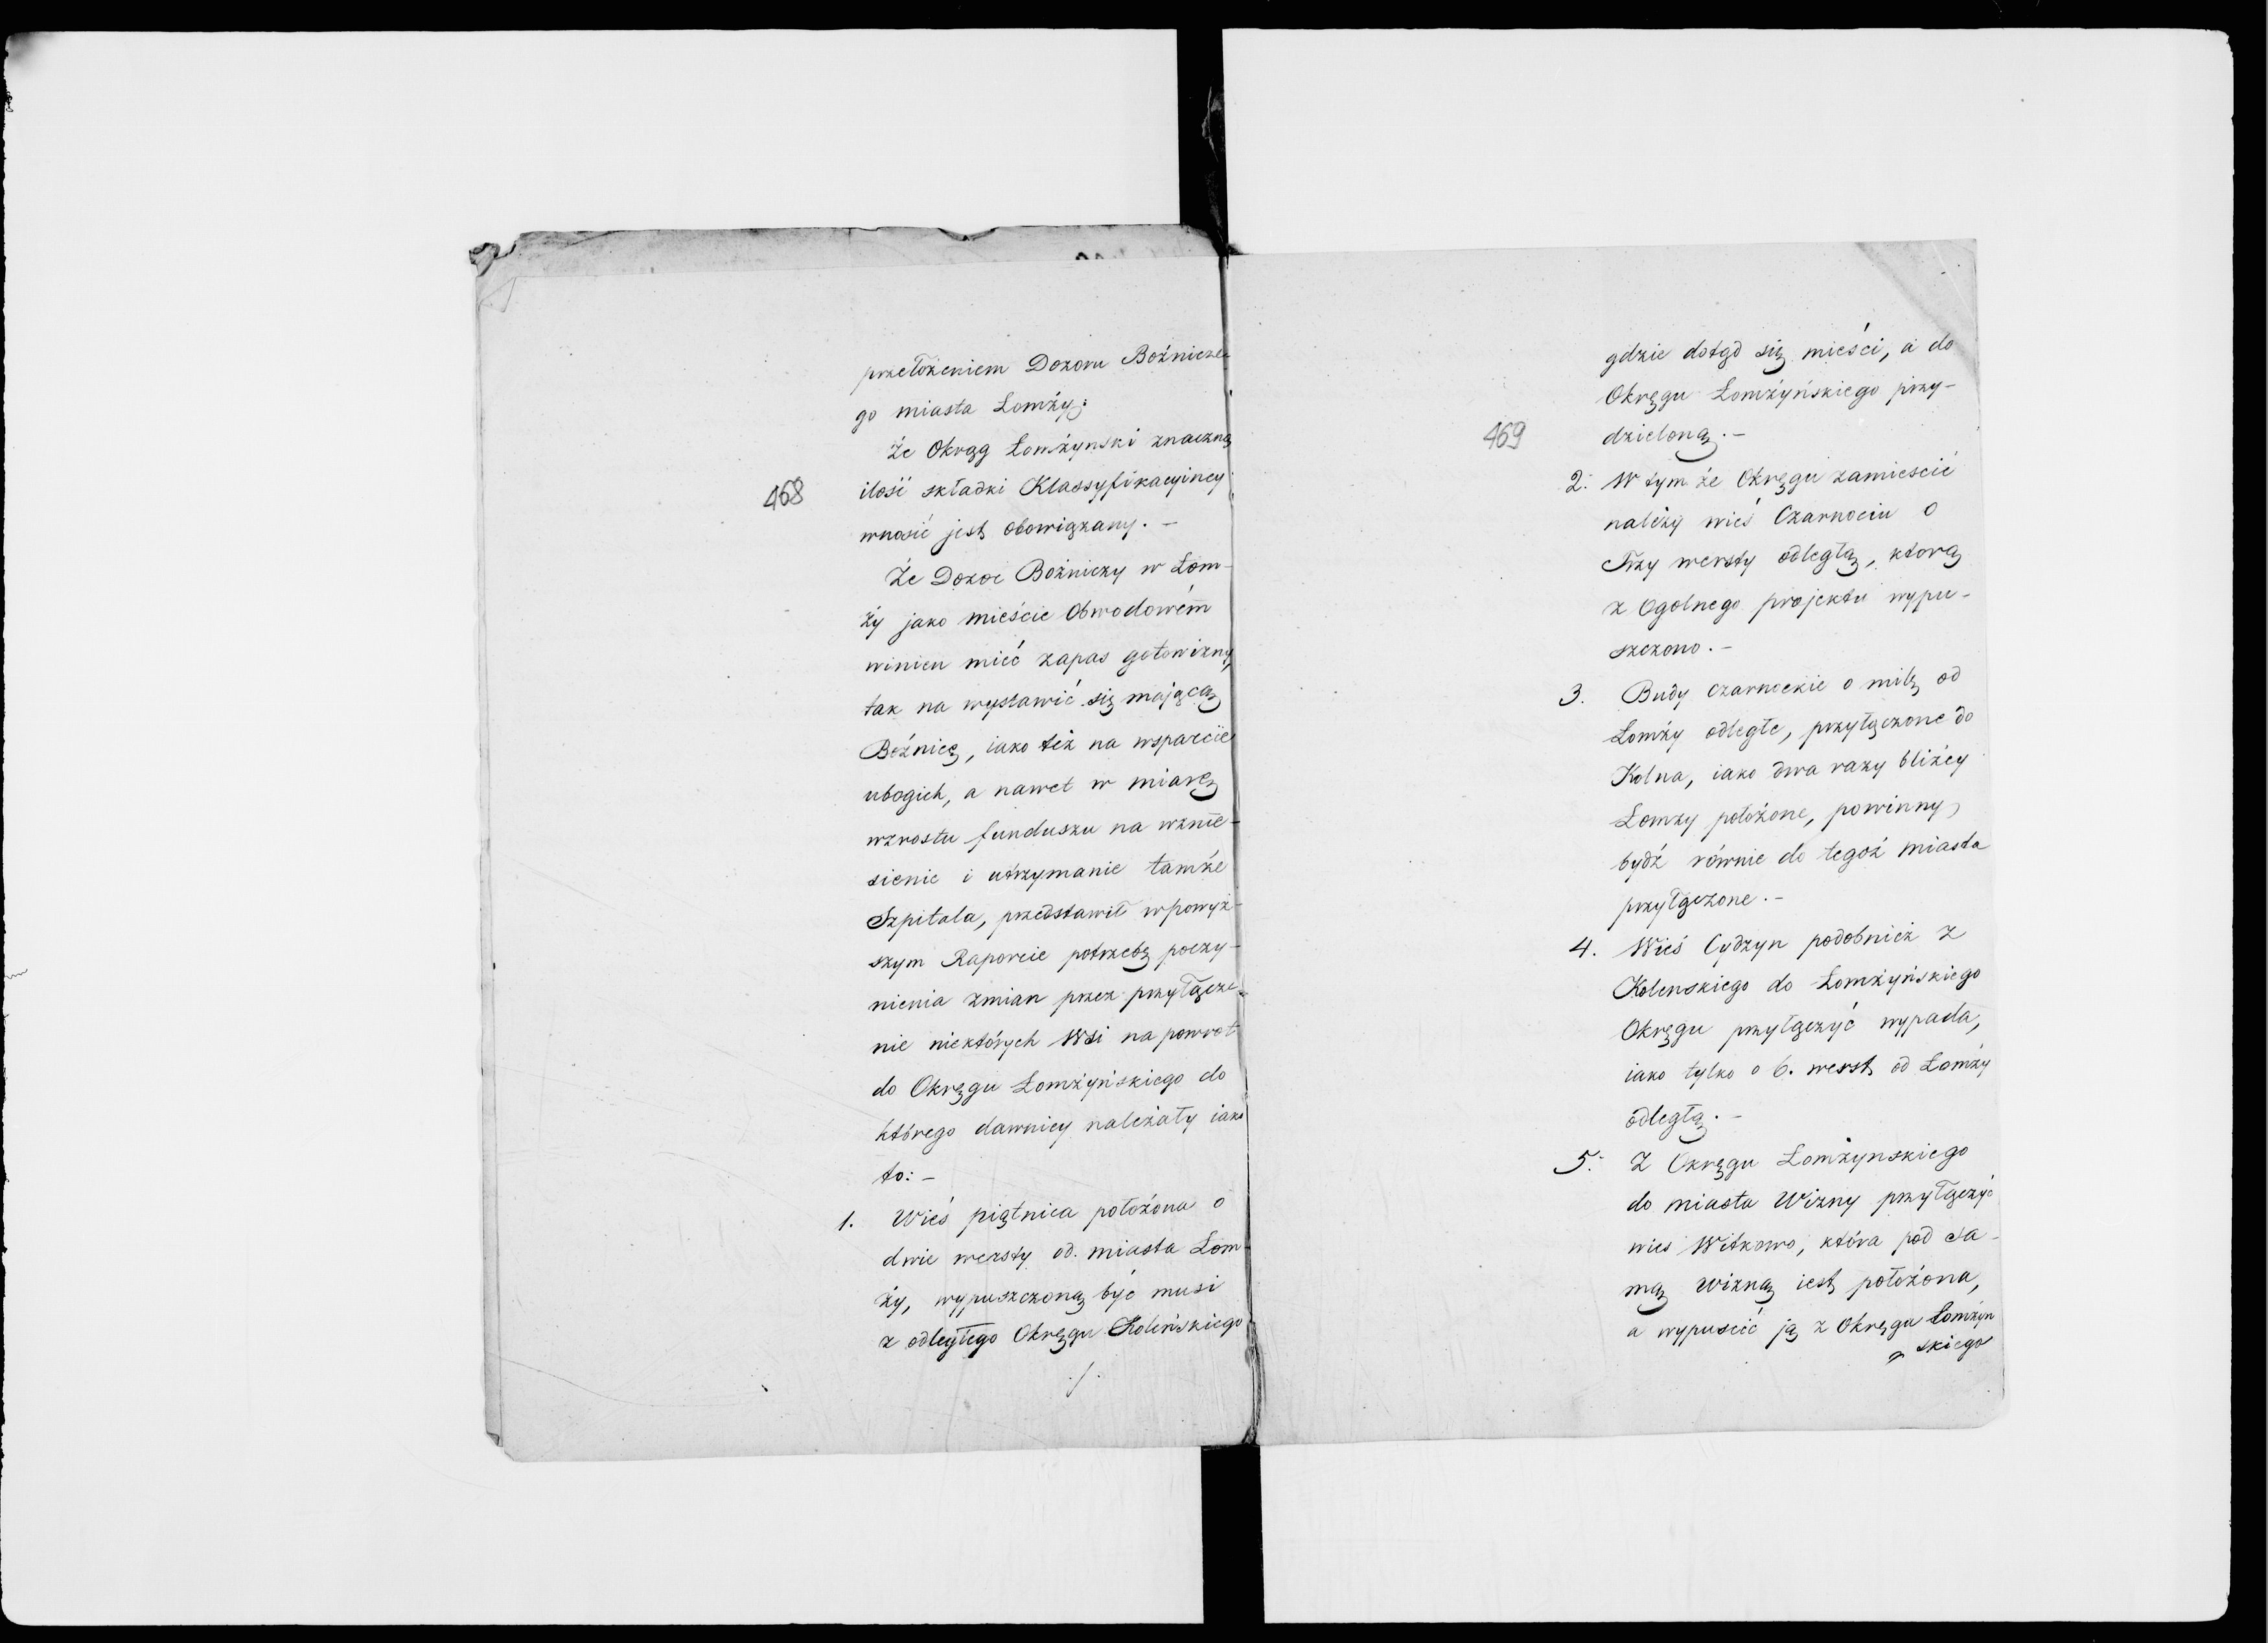 przełożeniem Dozoru Bożnicze-
go miasta Łomży;
Że Okrąg Łomżynski znaczną
468
ilość składki Klassyfikacyiney
wnosić jest obowiązany. –
Że Dozor Bożniczy w Łom-
ży jako mieście Obwodowém
winien mieć zapas gotowizny,
tak na wystawić się mającą
Bożnicę, iako też na wsparcie
ubogich, a nawet w miarę
wzrostu funduszu na wznie-
sienie i utrzymanie tamże
Szpitala, przedstawił w powyż-
szym Raporcie potrzebę poczy-
nienia zmian przez przyłącze-
nie niektórych Wsi na powrot
do Okręgu Łomżyńskiego do
którego dawniey należały iako
to: –
1. Wieś piątnica położona o
dwie wersty od miasta Łom-
ży, wypuszczoną być musi
z odległego Okręgu Koleńskiego
./.
gdzie dotąd się mieści, a do
Okręgu Łomżyńskiego przy-
469
dzieloną. –
2. W tym że Okręgu zamiescić
należy wieś Czarnocin o
Trzy wersty odległą, ktorą
z Ogolnego projektu wypu-
szczono. –
3. Budy czarnockie o milę od
Łomży odległe, przyłączone do
Kolna, iako dwa razy bliżey
Łomzy położone, powinny
bydź równie do tegoż miasta
przyłączone. –
4. Wieś Cydzyn podobnież z
Kolenskiego do Łomżyńskiego
Okręgu przyłączyć wypada,
iako tylko o 6. werst od Łomży
odległą. –
5. Z Okręgu Łomżynskiego
do miasta Wizny przyłączyć
wies Witkowo, która pod sa-
mą Wizną iest położona,
a wypuscić ją z Okręgu Łomżyn
skiego